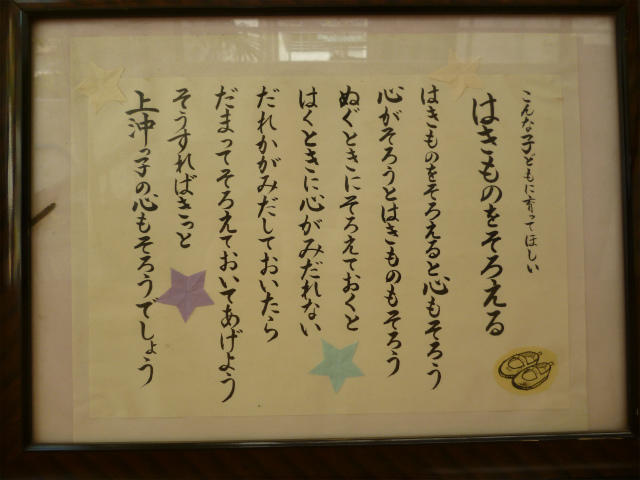 こんな子どもに育ってほしい
はきものをそろえる
はきものをそろえると心もそろう
心がそろうとはきものもそろう
ぬぐときにそろえておくと
はくときに心がみだれない
だれかがみだしておいたら
だまってそろえておいてあげよう
そうすればきっと
上沖っ子の心もそろうでしょう